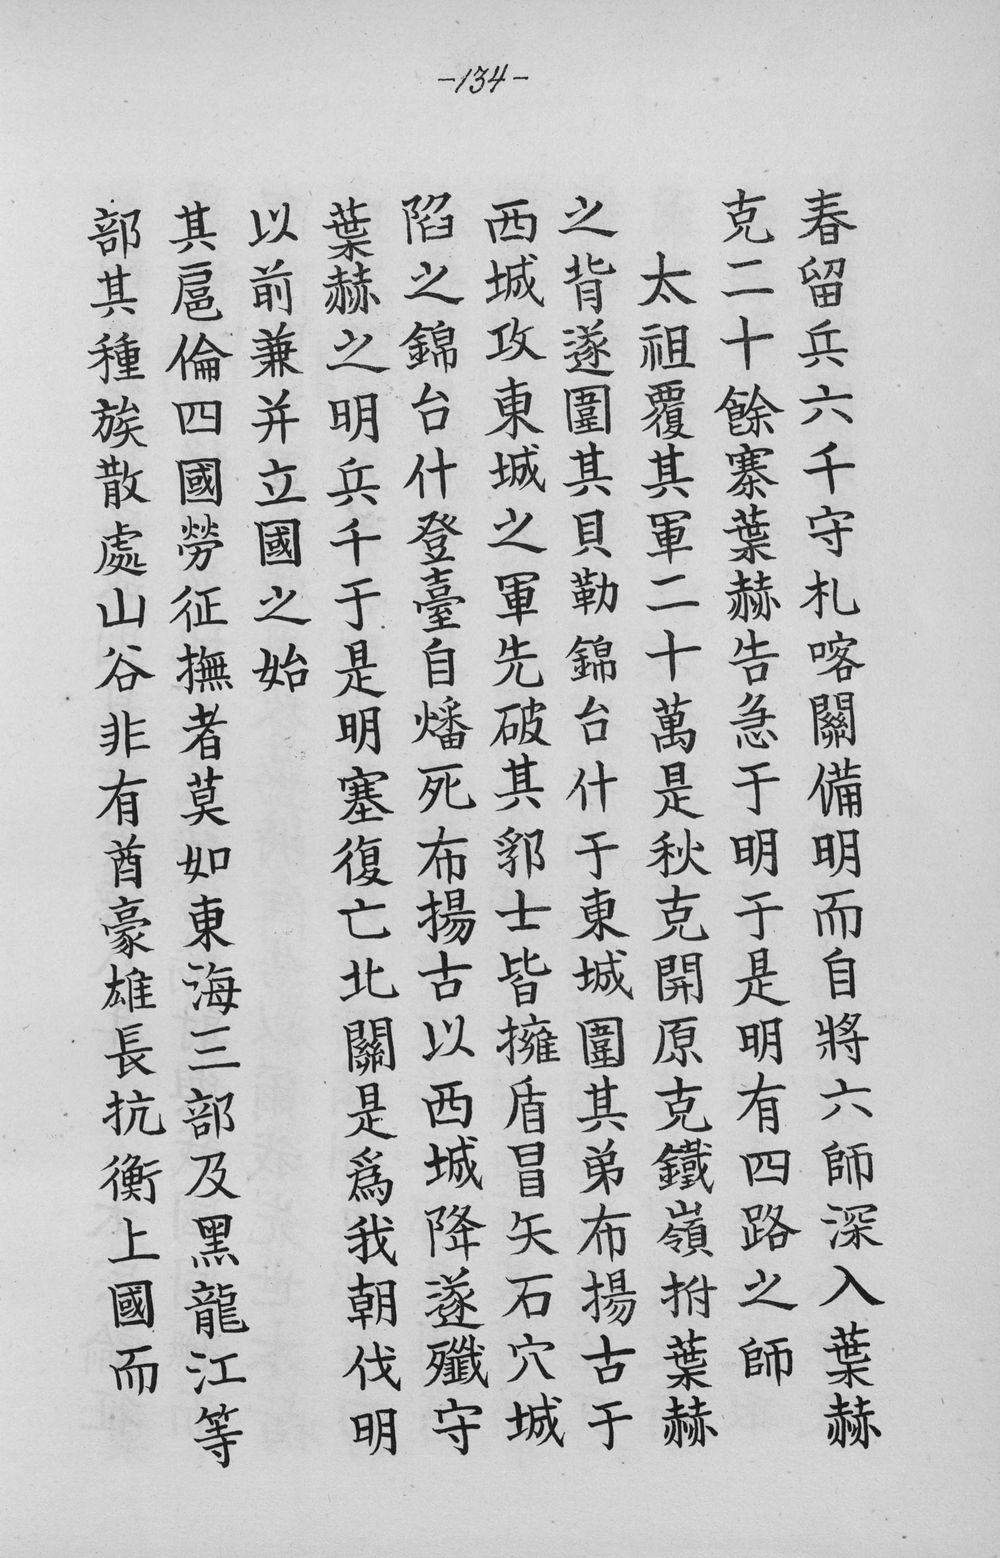 -134-
春留兵六千守札喀關備明而自將六師深入葉赫
克二十餘寨葉赫告急于明于是明有四路之師
太祖覆其軍二十萬是秋克開原克鐵嶺拊葉赫
之背遂圍其貝勒錦台什于東城圍其弟布揚古于
西城攻東城之軍先破其郛士皆擁盾冒矢石穴城
陷之錦台什登臺自燔死布揚古以西城降遂殲守
葉赫之明兵千于是明塞復亡北關是爲我朝伐明
以前兼并立國之始
其扈倫四國勞征撫者莫如東海三部及黑龍江等
部其種族散處山谷非有酋豪雄長抗衡上國而